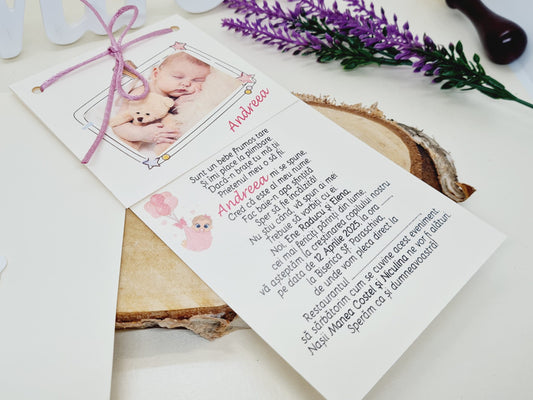 Andreea
Sunt un bebe frumos tare
Și îmi place la plimbare
Dacă-n brațe tu mă ții
Prietenul meu o să fii.
Andreea mi se spune,
Cred că este al meu nume
Fac baie-n apa sfințită
Sper să fie încălzită!
Nu știu când, vă spun ai mei
Trebuie să vorbiți cu ei
Noi, Ene Raducu și Elena,
cei mai fericiți părinți din lume,
vă așteptăm la creștinarea copilului nostru
pe data de 12 Aprilie 2025, la ora ____,
la Biserica Sf. Paraschiva,
de unde vom pleca direct la
Restaurantul
să sărbătorim cum se cuvine acest eveniment.
Nașii Manea Costel și Niculina ne vor fi alături.
Sperăm ca și dumneavoastră!